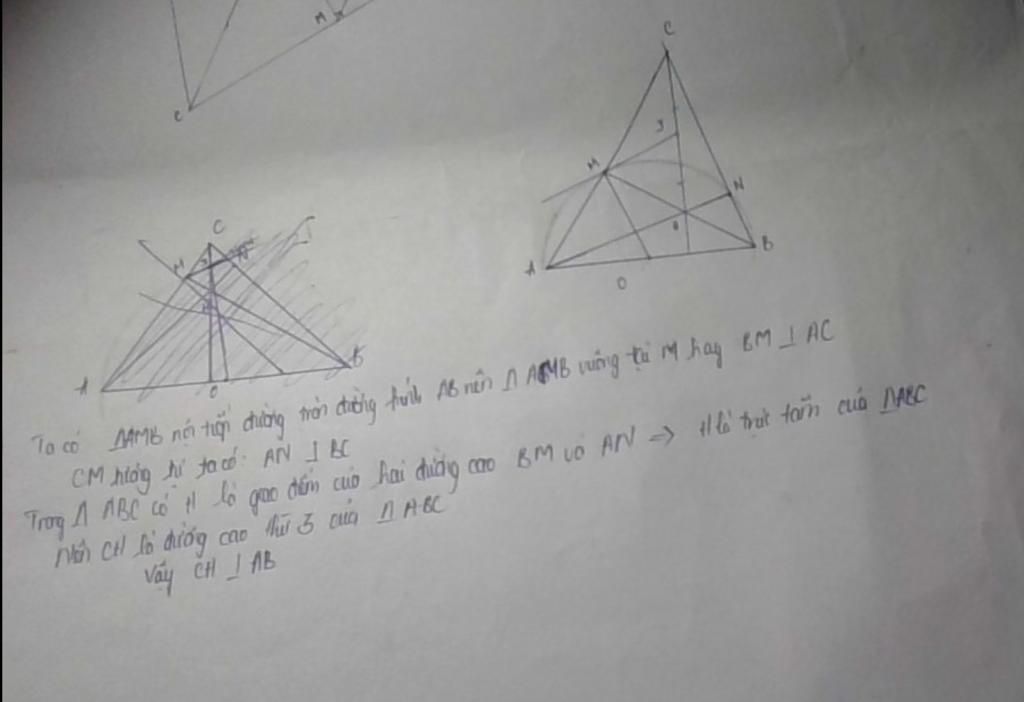 M
C
C
J
M
N
H
A
O
B
C
M
N
A
O
B
Ta có △AMB nội tiếp đường tròn đường kính AB nên △AMB vuông tại M hay BM ⊥ AC
CM tương tự ta có: AN ⊥ BC
Trong △ ABC có H là giao điểm của hai đường cao BM và AN ⇒ H là trực tâm của △ABC
Nên CH là đường cao thứ 3 của △ABC
Vậy CH ⊥ AB